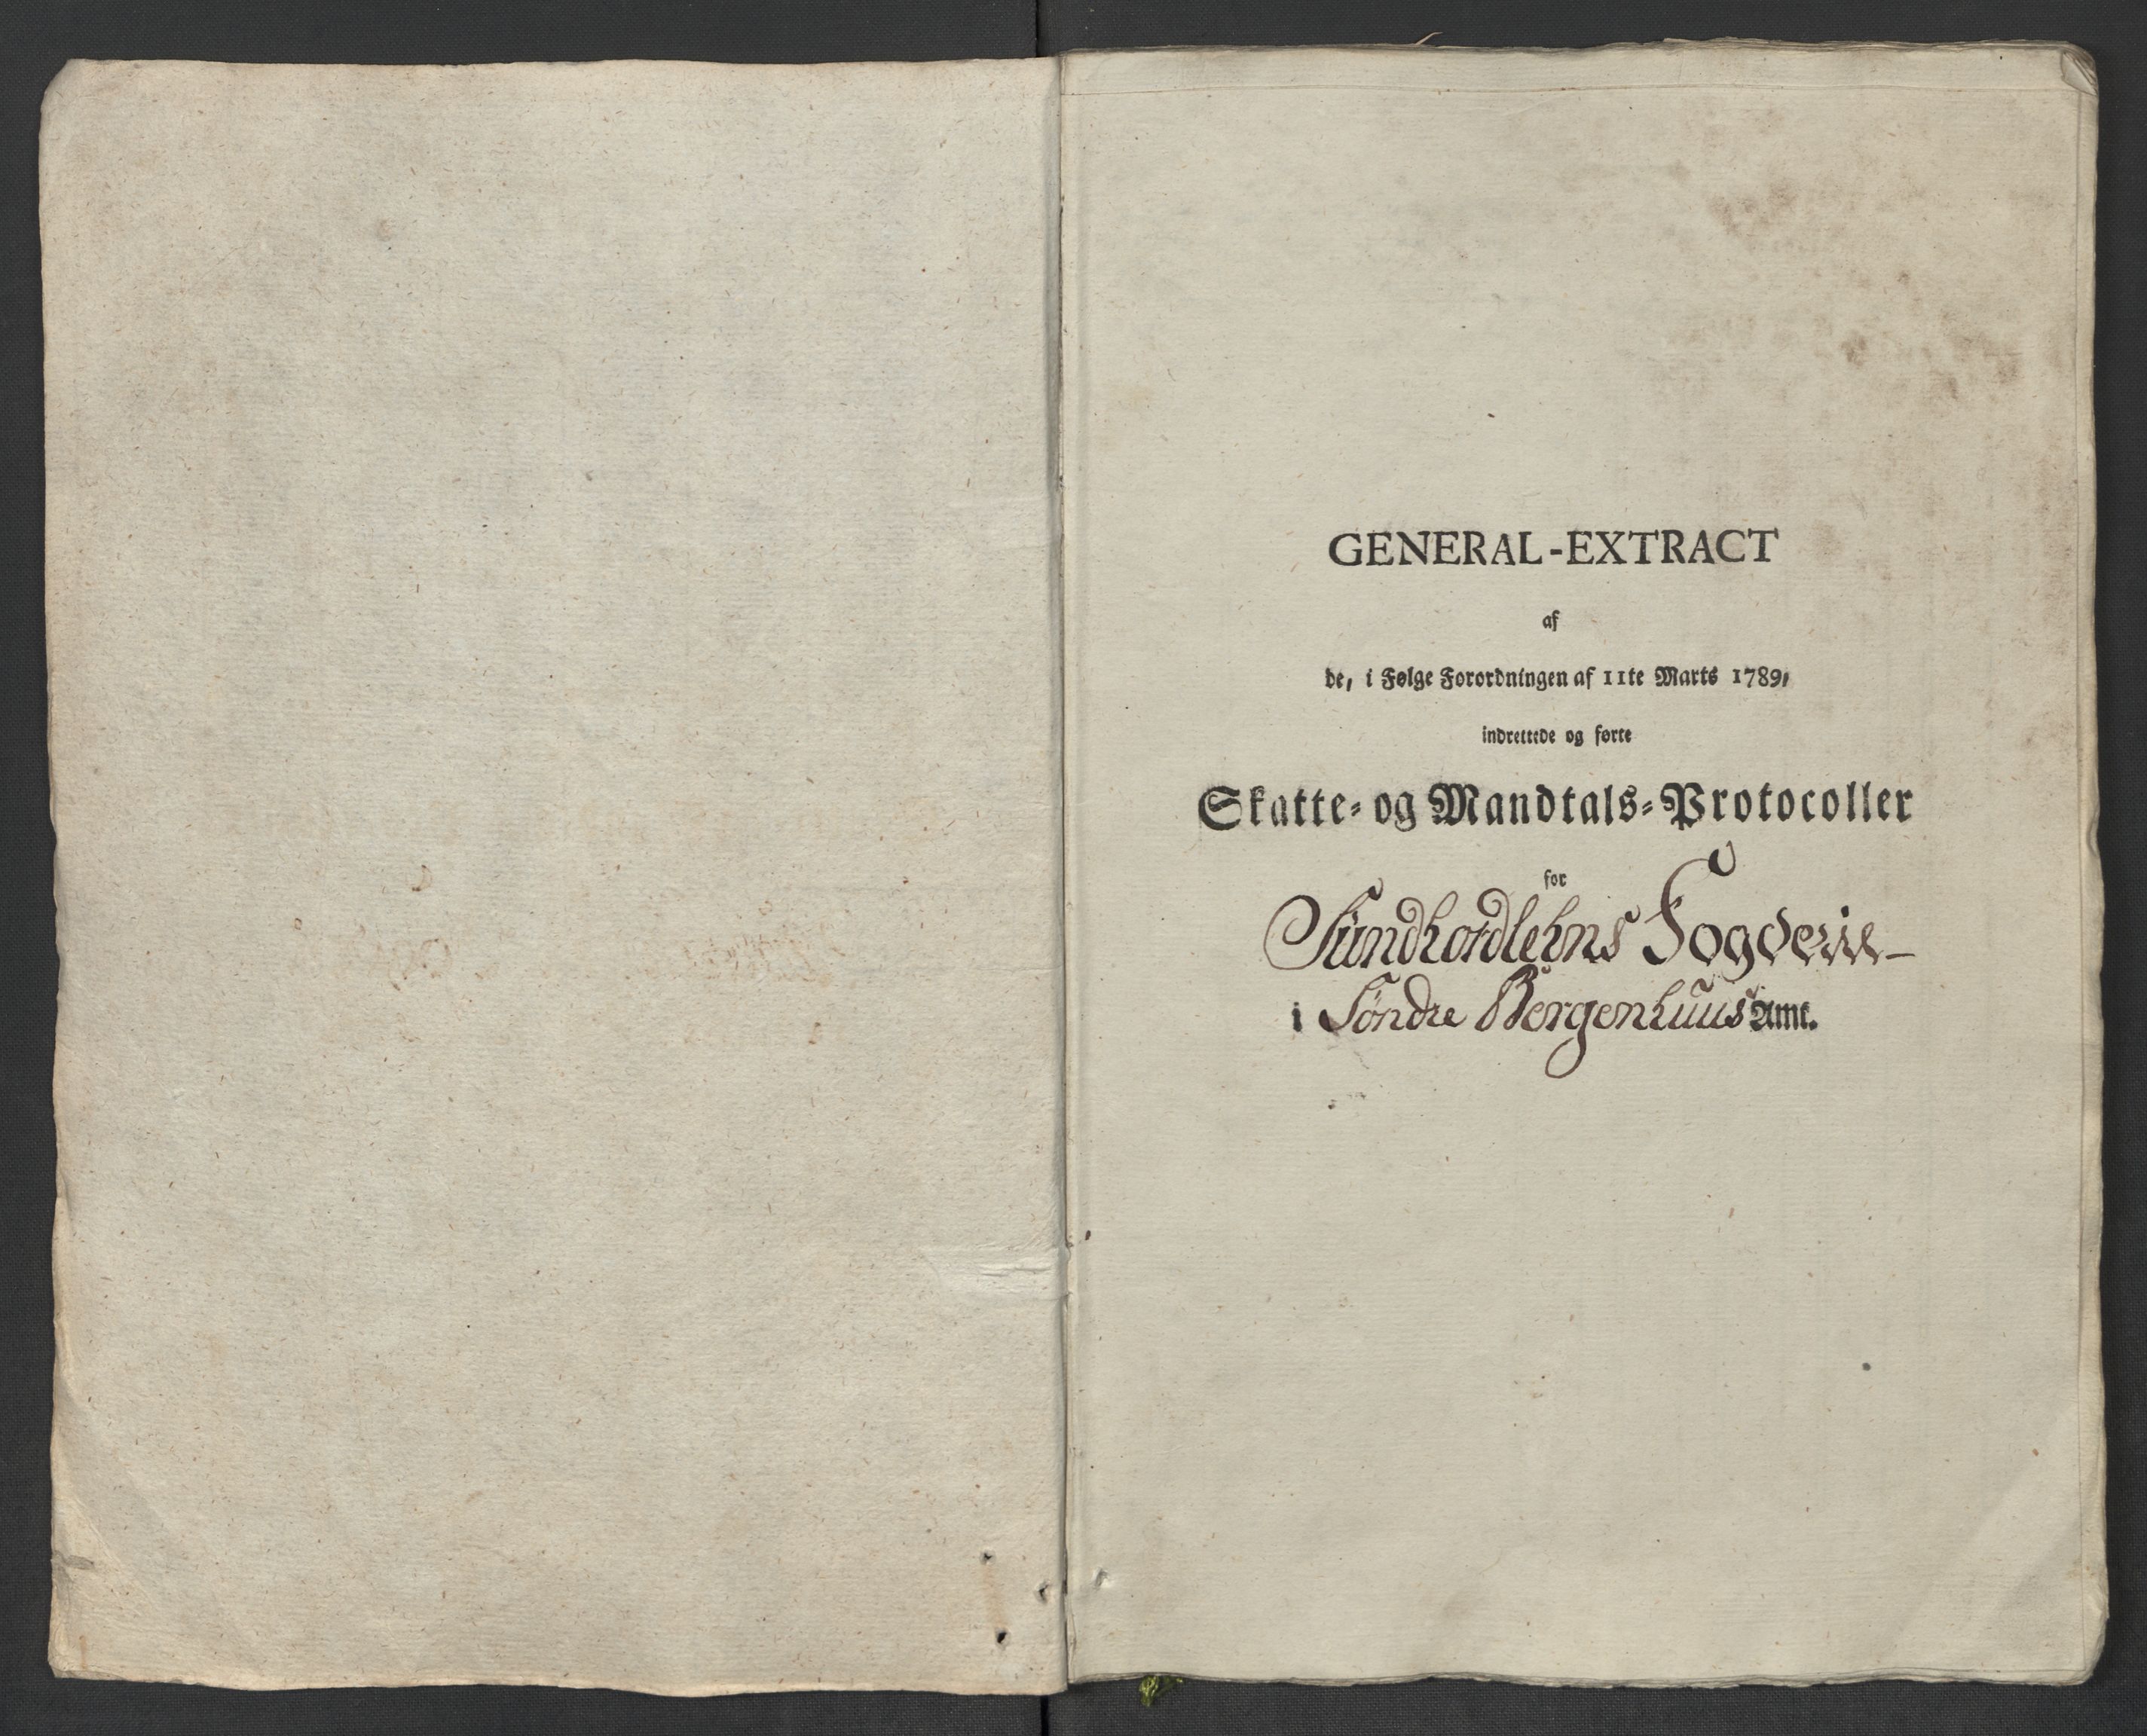 GENERAL-EXTRACT
af
de, i Følge Forordningen af 11te Marts 1789,
indrettede og førte
Skatte- og Mandtals-Protocoller
for
Sundhordlehns Fogderie
i Søndre Bergenhuus Amt.